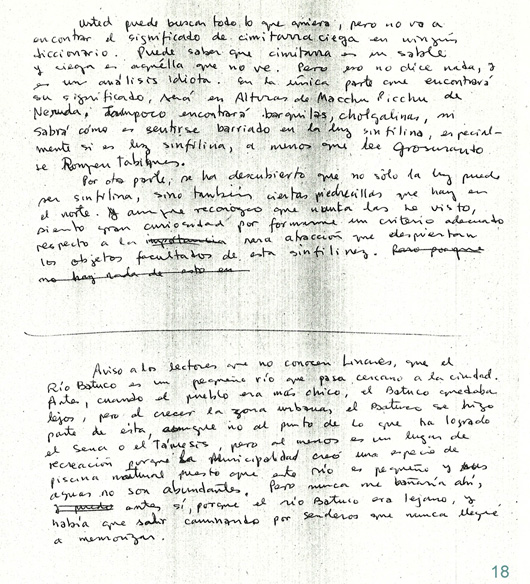 Usted puede buscar todo lo que quiera, pero no va a
encontrar el significado de cimitarra ciega en ningún
diccionario. Puede saber que cimitarra es un sable
y ciega es aquélla que no ve. Pero eso no dice nada, y
es un análisis idiota. En la única parte que encontrará
su significado, será en Alturas de Macchu Picchu de
Neruda, Tampoco encontrará barquilas, cholgalinas, ni
sabrá cómo es sentirse barriado en la luz sinfilina, especial-
mente si es luz sinfilina, a menos que lea
se Rompen Tabiques.
Por otra parte, se ha descubierto que no sólo la luz puede
ser sinfilina, sino también ciertas piedrecillas que hay en
el norte. Y aunque reconozco que nunca las he visto,
siento gran curiosidad por formarme un criterio adecuado
respecto a la importancia rara atracción que despiertan
los objetos facultados de esta sinfilinez. Pero porque
no hay nada de esto en
Aviso a los lectores que no conocen Linares, que el
Río Batuco es un pequeño río que pasa cercano a la ciudad.
Antes, cuando el pueblo era más chico, el Batuco quedaba
lejos, pero al crecer la zona urbana, el Batuco se hizo
parte de ésta, aunque no al punto de lo que ha logrado
el Sena o el Támesis, pero al menos es un lugar de
recreación porque la Municipalidad creó una especie de
piscina natural puesto que este río es pequeño y sus
aguas no son abundantes. Pero nunca me bañaría ahí,
y puedo antes sí, porque el río Batuco era lejano, y
había que salir caminando por senderos que nunca llegué
a memorizar.
18